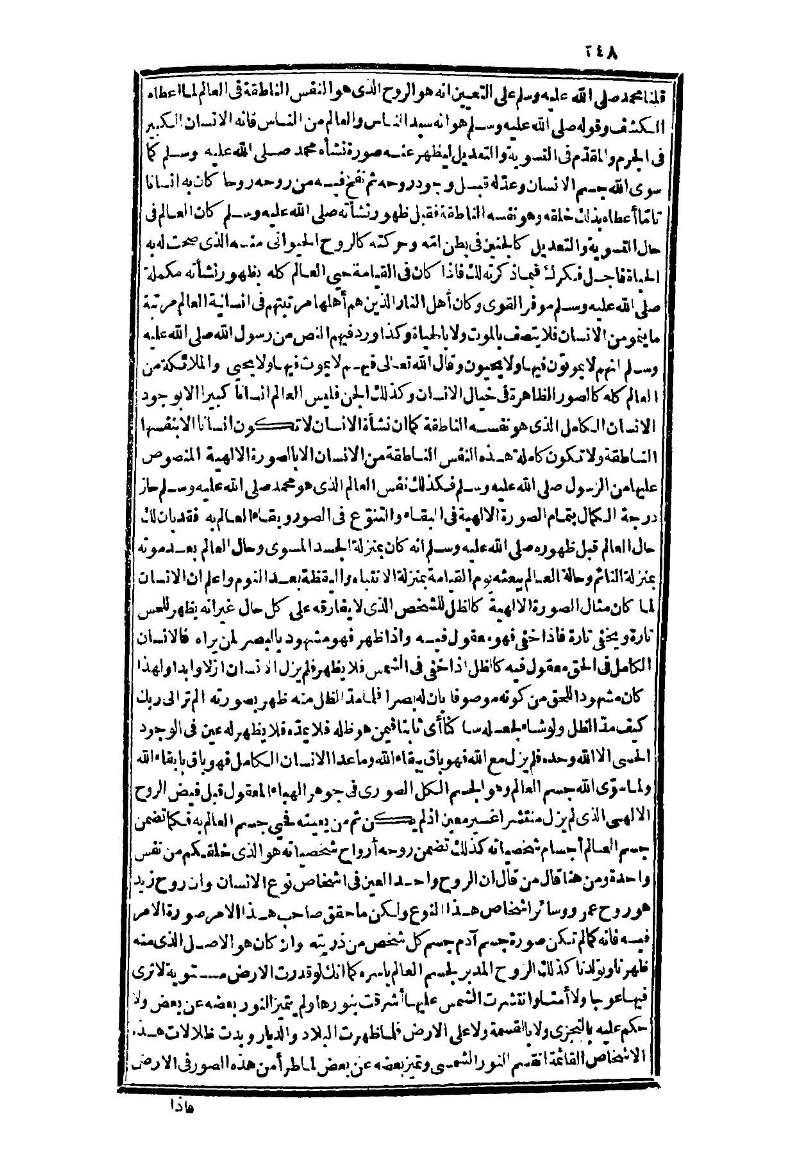 ٢٤٨
قلنا محمد صلى الله عليه وسلم على التعيين انه هو الروح الذى هو النفس الناطقة فى العالم لما اعطاه
الكشف وقوله صلى الله عليه وسلم هو انه سيد الناس والعالم من الناس فانه الانسان الكبير
فى الجرم والمقدم فى التسوية والتعديل ليظهر عنه صورة نشأة محمد صلى الله عليه وسلم كما
سوى الله جسم الانسان وعدله قبل وجود روحه ثم نفخ فيه من روحه روحا كان به انسانا
تاما أعطاه بذلك خلقه وهو نفسه الناطقة فقبل ظهور نشأته صلى الله عليه وسلم كان العالم فى
حال التسوية والتعديل كالجنين فى بطن امه وحركته كالروح الحيوانى منه الذى صحت له به
الحياة فاجل فكرك فيما ذكرته لك فاذا كان فى القيامة حيى العالم كله بظهور نشأته مكملة
صلى الله عليه وسلم موفر القوى وكان أهل النار الذين هم أهلها مرتبتهم فى انسانية العالم مرتبة
ما ينمو من الانسان فلا يتصف بالموت ولا بالحياة وكذا ورد فيهم النص من رسول الله صلى الله عليه
وسلم انهم لا يموتون فيها ولا يحيون وقال الله تعالى فيهم لا يموت فيها ولا يحيى والملائكة من
العالم كله كالصور الظاهرة فى خيال الانسان وكذلك الجن فليس العالم انسانا كبيرا الا بوجود
الانسان الكامل الذى هو نفسه الناطقة كما ان نشأة الانسان لا تكون انسانا الا بنفسها
الناطقة ولا تكون كاملة هذه النفس الناطقة من الانسان الا بالصورة الالهية المنصوص
عليها من الرسول صلى الله عليه وسلم فكذلك نفس العالم الذى هو محمد صلى الله عليه وسلم حاز
درجة الكمال بتمام الصورة الالهية فى البقاء والتنوع فى الصور وبقاء العالم به فقد بان لك
حال العالم قبل ظهوره صلى الله عليه وسلم انه كان بمنزلة الجسد المسوى وحال العالم بعد موته
بمنزلة النائم وحالة العالم ببعثه يوم القيامة بمنزلة الانتباه واليقظة بعد النوم واعلم ان الانسان
لما كان مثال الصورة الالهية كالظل للشخص الذى لا يفارقه على كل حال غير انه يظهر للحس
تارة ويخفى تارة فاذا خفى فهو معقول فيه واذا ظهر فهو مشهود بالبصر لمن يراه فالانسان
الكامل فى الحق معقول فيه كالظل اذا خفى فى الشمس فلا يظهر فلم يزل الانسان ازلا وابدا ولهذا
كان مشهودا للحق من كونه موصوفا بان له بصرا فلما مد الظل منه ظهر بصورته الم تر الى ربك
كيف مد الظل ولو شاء لجعله ساكنا أى ثابتا فيمن هو ظله فلا يمده فلا يظهر له عين فى الوجود
الحسى الا الله وحده فلم يزل مع الله فهو باق ببقاء الله وما عدا الانسان الكامل فهو باق بابقاء الله
ولما سوى الله جسم العالم وهو الجسم الكل الصورى فى جوهر الهباء المعقول قبل فيض الروح
الالهى الذى لم يزل منتشرا غير معين اذ لم يكن ثم من يعينه فحيى جسم العالم به فكما تضمن
جسم العالم أجسام شخصياته كذلك تضمن روحه أرواح شخصياته هو الذى خلقكم من نفس
واحدة ومن هنا قال من قال ان الروح واحد العين فى اشخاص نوع الانسان وان روح زيد
هو روح عمرو وسائر اشخاص هذا النوع ولكن ما حقق صاحب هذا الامر صورة الامر
فيه فانه كما لم تكن صورة جسم آدم جسم كل شخص من ذريته وان كان هو الاصل الذى منه
ظهرنا وتولدنا كذلك الروح المدبر لجسم العالم باسره كما انك لو قدرت الارض مستوية لا ترى
فيها عوجا ولا أمتا وانتشرت الشمس عليها أشرقت بنورها ولم يتميز النور بعضه عن بعض ولا
حكم عليه بالتجزى ولا بالقسمة ولا على الارض فلما ظهرت البلاد والديار وبدت ظلالات هذه
الاشخاص القائمة انقسم النور الشمسى وتميز بعضه عن بعض لما طرأ من هذه الصور فى الارض
فاذا